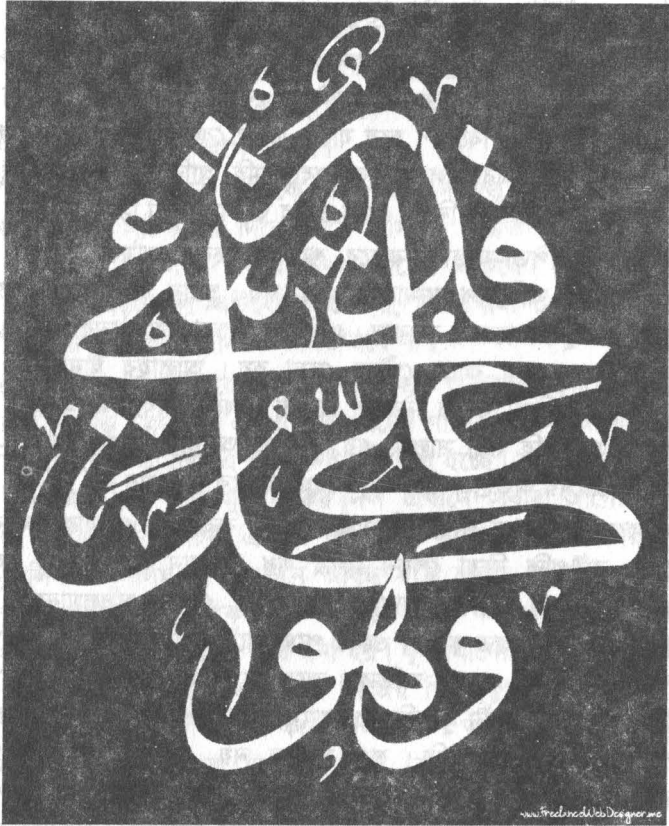 وهو
على كل
شيء
قدير
www.FreelanceWebDesigner.me